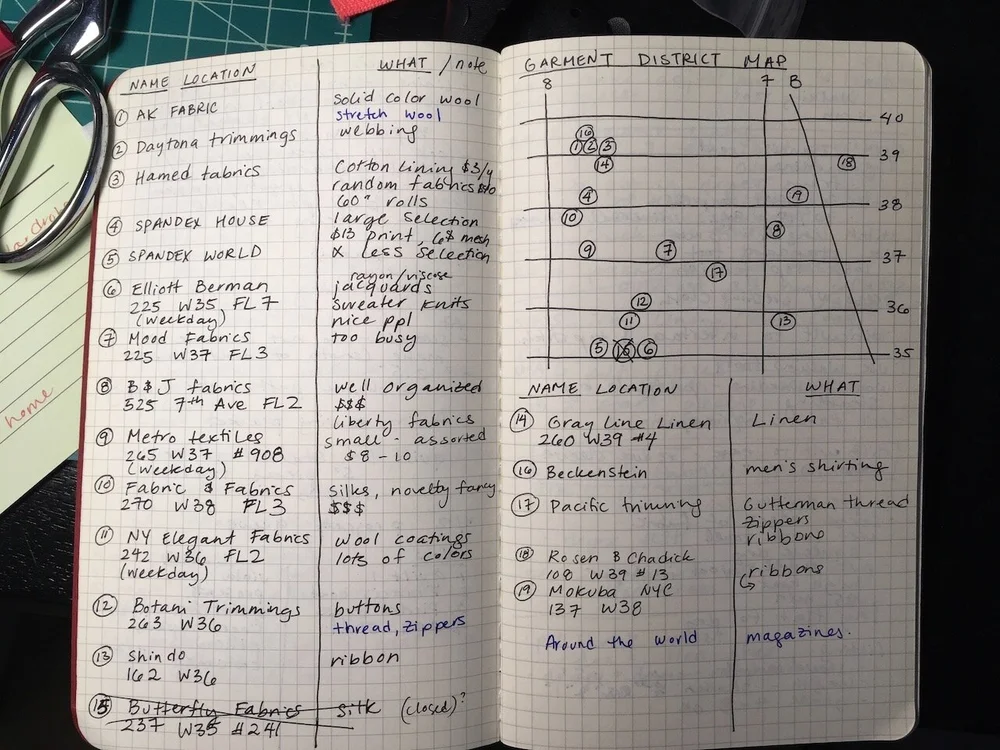 NAME LOCATION
WHAT / note
① AK FABRIC
solid color wool
stretch wool
② Daytona trimmings
webbing
③ Hamed fabrics
Cotton lining $3/y
random fabrics $10
60" rolls
④ SPANDEX HOUSE
large selection
$13 print, 6$ mesh
⑤ SPANDEX WORLD
X Less Selection
⑥ Elliott Berman
225 W35 FL 7
(weekday)
rayon/viscose
jacquards
sweater knits
nice ppl
⑦ Mood Fabrics
225 W37 FL3
too busy
⑧ B&J fabrics
525 7th Ave FL2
well organized
$$$
liberty fabrics
⑨ Metro textiles
265 W37 #908
(weekday)
small - assorted
$8-10
⑩ Fabric & Fabrics
270 W38 FL3
silks, novelty fancy
$$$
⑪ NY Elegant Fabrics
242 W36 FL2
(weekday)
wool coatings
lots of colors
⑫ Botani Trimmings
263 W36
buttons
thread, zippers
⑬ Shindo
162 W36
ribbon
⑮ Butterfly Fabrics
237 W35 #241
silk (closed)?
GARMENT DISTRICT MAP
8 7 B
40
⑯
① ② ③
39
⑭ ⑱
④ ⑲
38
⑩
⑧
⑨ ⑦
37
⑰
⑫
36
⑪ ⑬
⑤ ⑮ ⑥
35
NAME LOCATION
WHAT
⑭ Gray Line Linen
260 W39 #4
Linen
⑯ Beckenstein
men's shirting
⑰ Pacific trimming
Gutterman thread
zippers
ribbons
⑱ Rosen & Chadick
108 W39 #13
⑲ Mokuba NYC
137 W38
ribbons
Around the world
magazines.
home